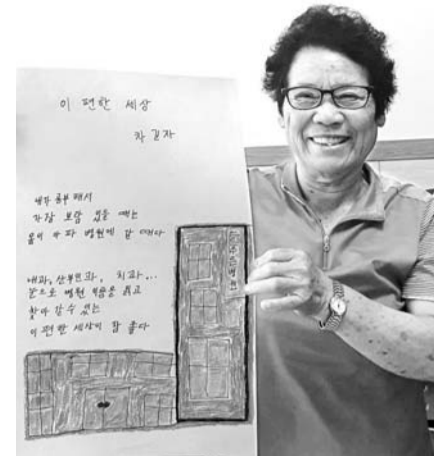 이 편한 세상
차긴자
내가 공부해서
가장 보람 있을 때는
몸이 아파 병원에 갈 때다
내과, 산부인과, 치과...
눈으로 병원 이름을 읽고
찾아 갈 수 있는
이 편한 세상이 참 좋다
병원